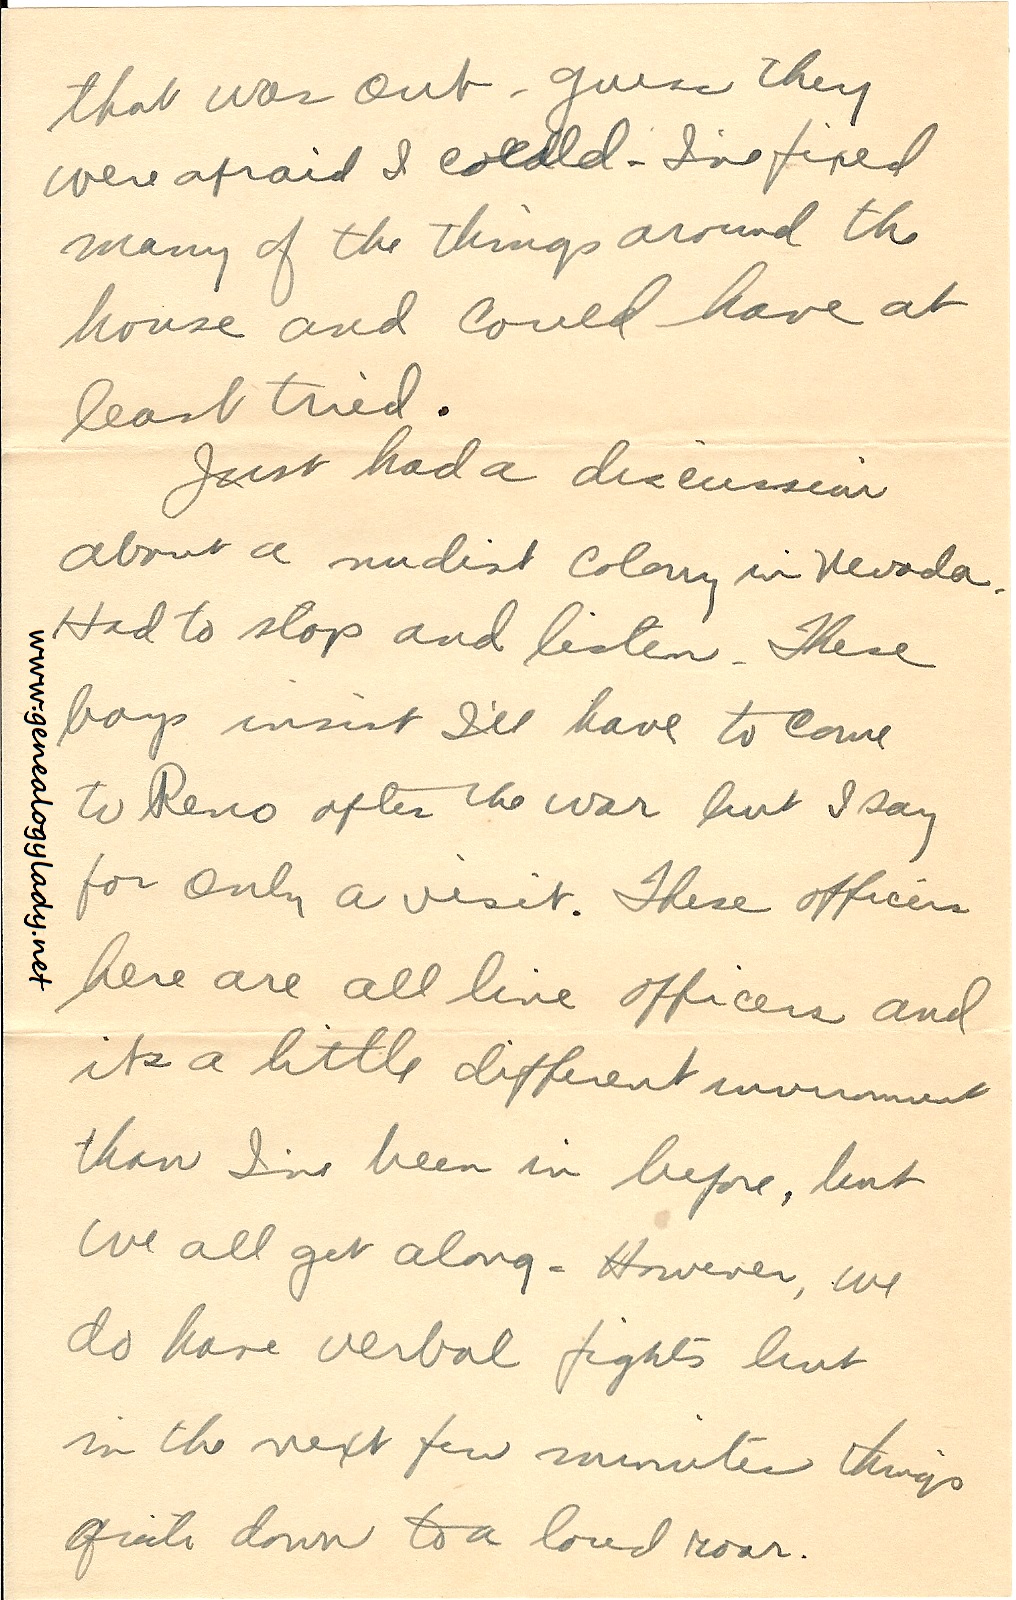 that was out - guess they
were afraid I could - I've fixed
many of the things around the
house and could have at
least tried.
Just had a discussion
about a nudist colony in Nevada.
Had to stop and listen - These
boys insist I'll have to come
to Reno after the war but I say
for only a visit. These officers
here are all line officers and
its a little different
than I've been in before, but
we all get along - However, we
do have verbal fights but
in the next few minutes things
down to a loud roar.
www.genealogylady.net